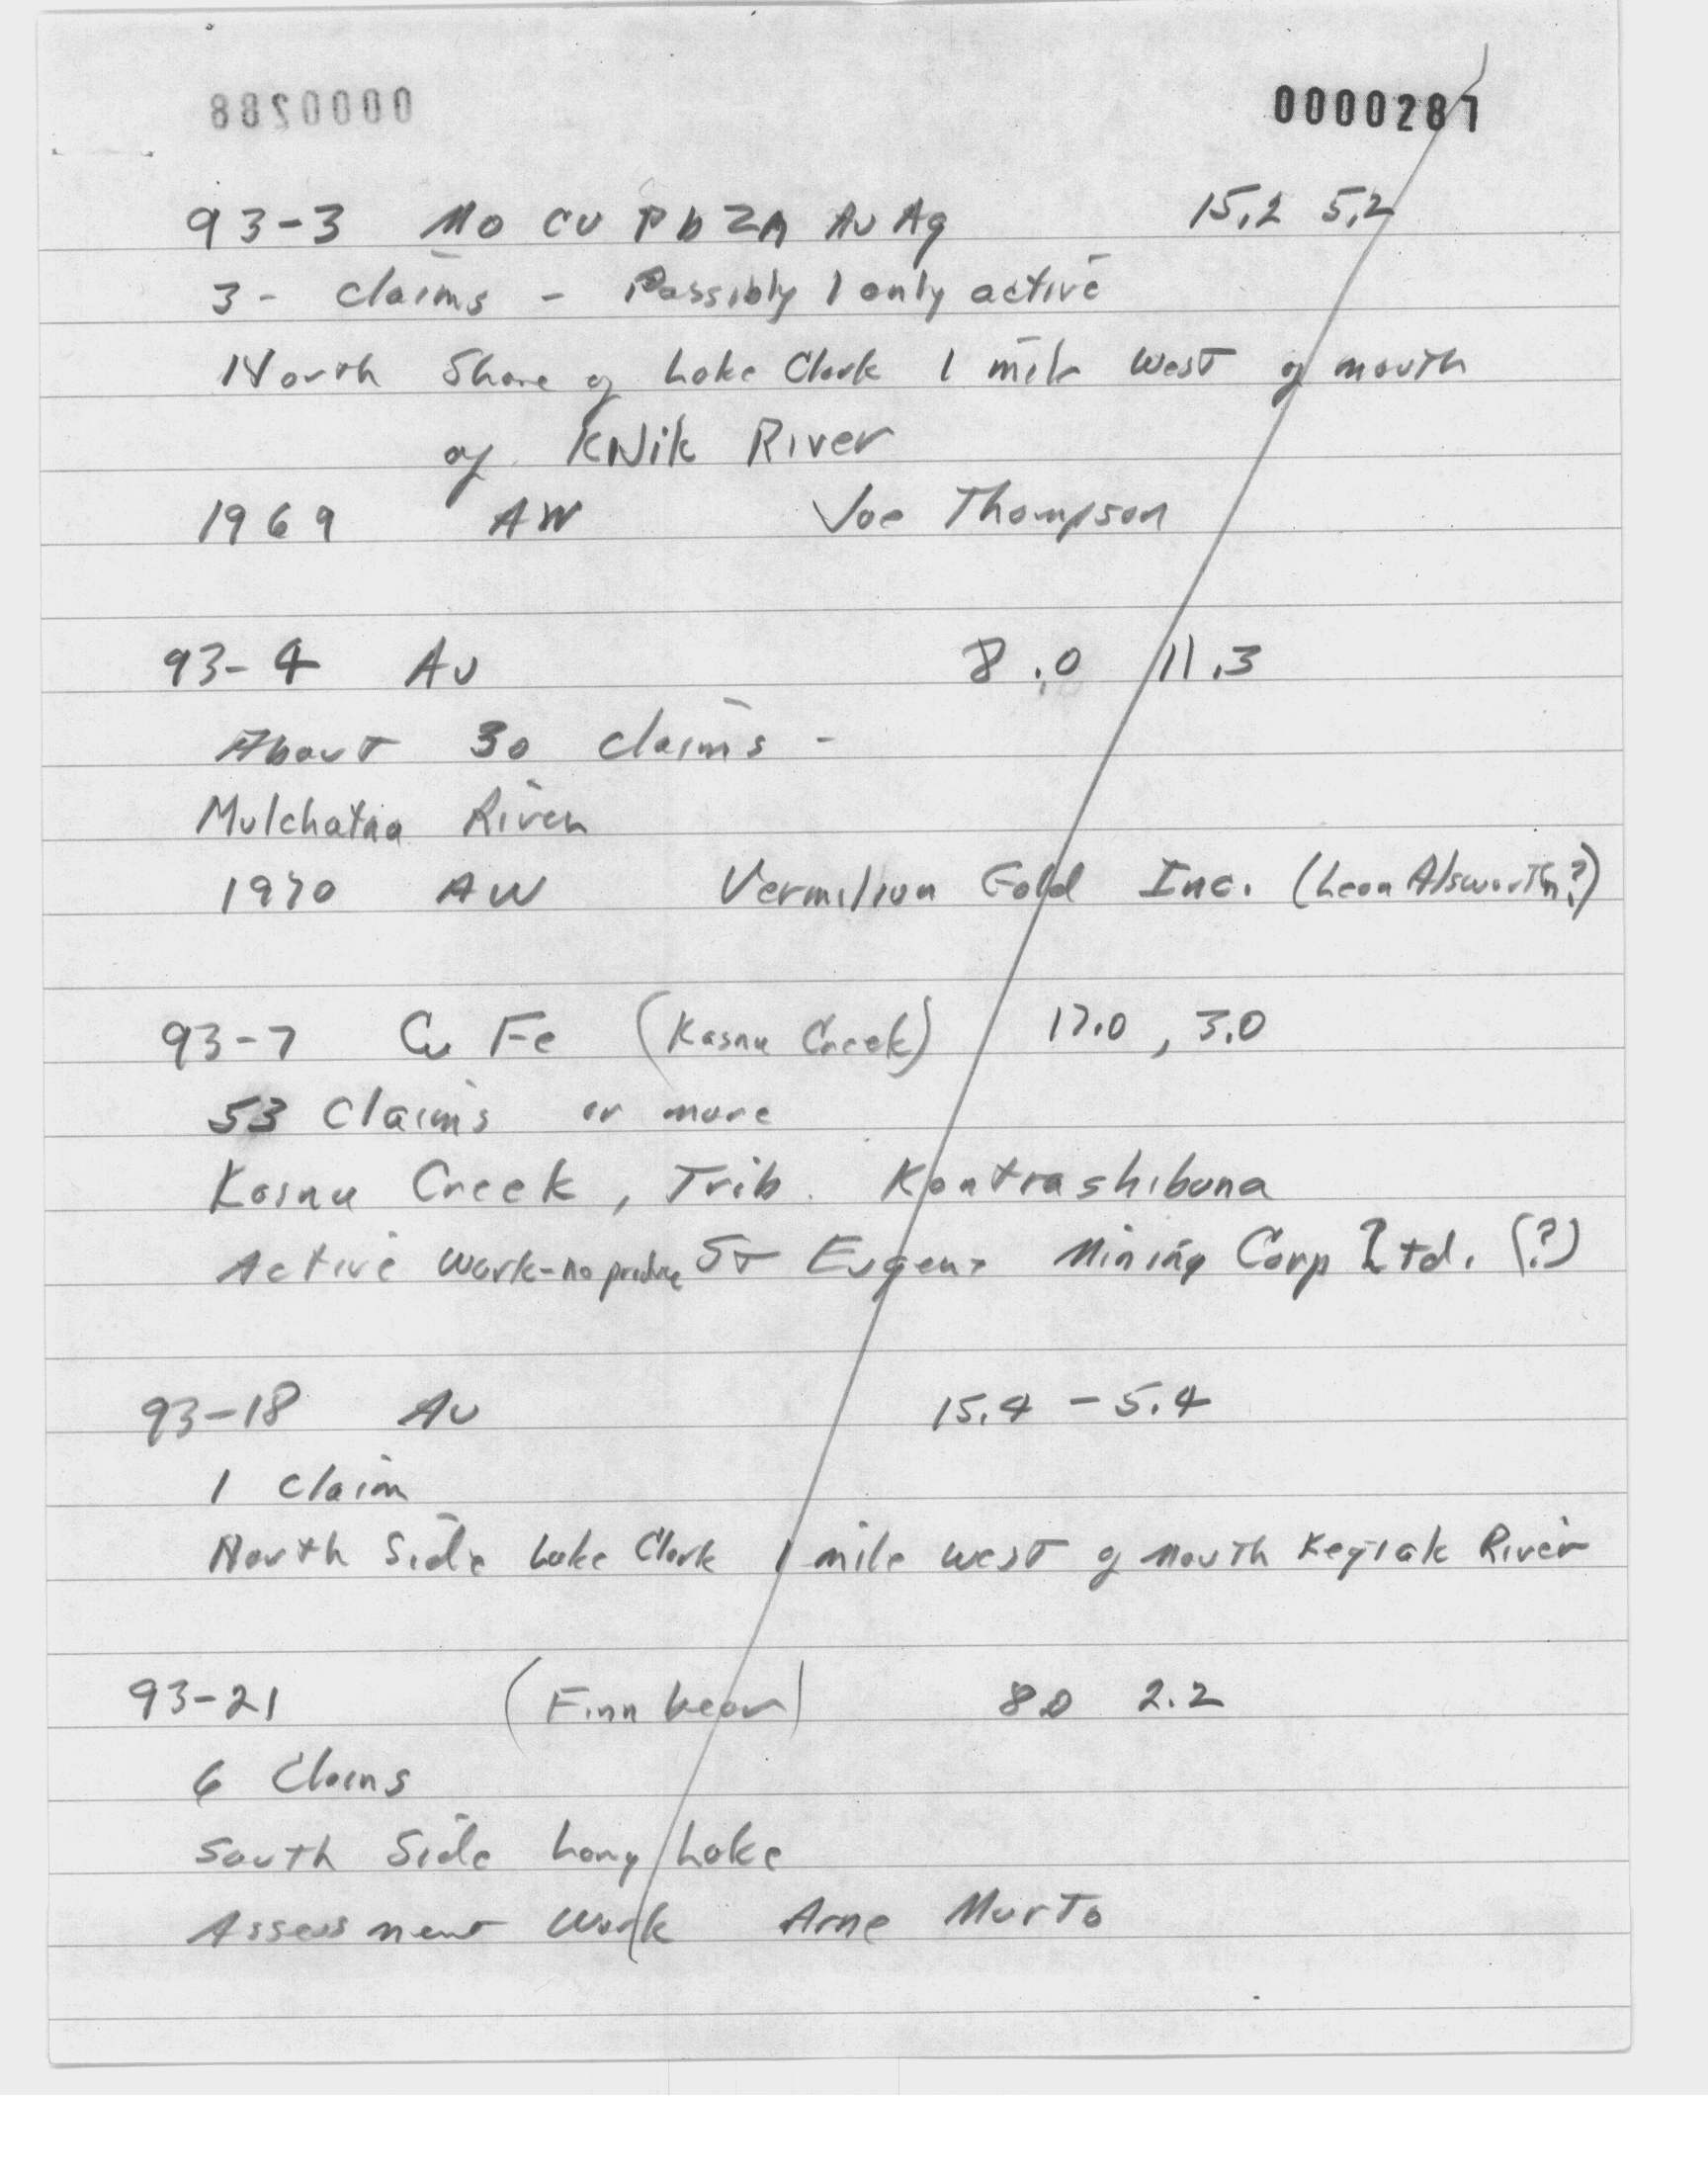 0000288 0000287
93-3 Mo Cu Pb Zn Au Ag 15.2 5.2
3- claims - Possibly 1 only active
North Shore of Lake Clark 1 mile West of mouth
of KNik River
1969 AW Joe Thompson
93-4 Au 8.0 11.3
About 30 claims -
Mulchatna River
1970 AW Vermilion Gold Inc. (Leon Alsworth?)
93-7 Cu Fe (Kasna Creek) 17.0, 3.0
53 Claims or more
Kasna Creek, Trib. Kontrashibuna
Active work-no produc St Eugene Mining Corp Ltd. (?)
93-18 Au 15.4 - 5.4
1 claim
North Side Lake Clark 1 mile west of mouth River
93-21 (Finn bear) 80 2.2
6 Claims
South Side Long Lake
Assessment Work Arne Murto